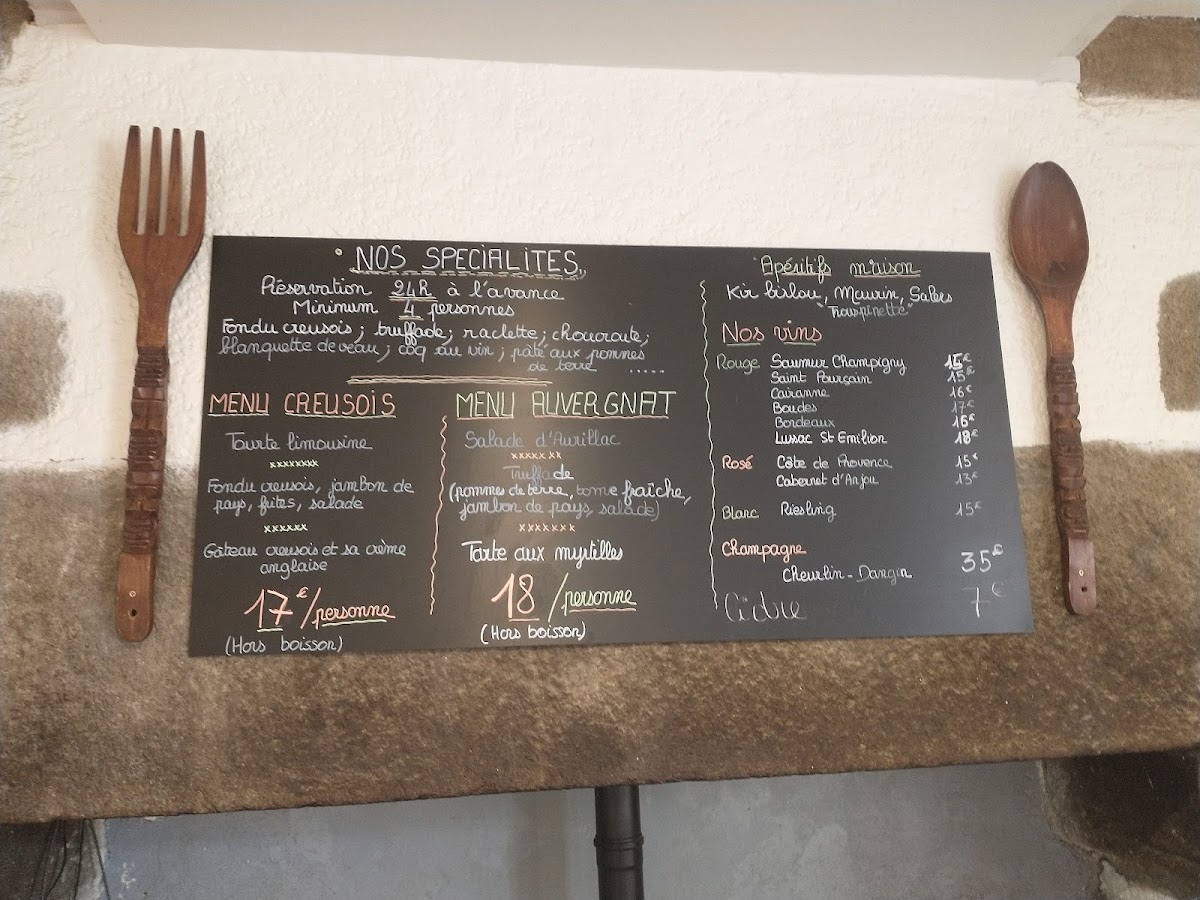 NOS SPECIALITES
Réservation 24h à l'avance
Minimum 4 personnes
Fondu creusois ; truffade ; raclette ; choucroute ;
blanquette de veau ; coq au vin ; pâté aux pommes
de terre .....
MENU CREUSOIS
Tourte limousine
xxxxxxxx
Fondu creusois, jambon de
pays, frites, salade
xxxxxx
Gâteau creusois et sa crème
anglaise
17€/personne
(Hors boisson)
MENU AUVERGNAT
Salade d'Aurillac
xxxxxxx
Truffade
(pommes de terre, tome fraîche,
jambon de pays, salade)
xxxxxxx
Tarte aux myrtilles
18/personne
(Hors boisson)
Apéritifs maison
Kir bisou, Maurin, Salers
"Trouspinette"
Nos vins
Rouge Saumur Champigny 15€
Saint Pourçain 15€
Cairanne 16€
Boudes 17€
Bordeaux 16€
Lussac St Emilion 18€
Rosé Côte de Provence 15€
Cabernet d'Anjou 13€
Blanc Riesling 15€
Champagne
Cheurlin-Dangin 35€
Cidre 7€